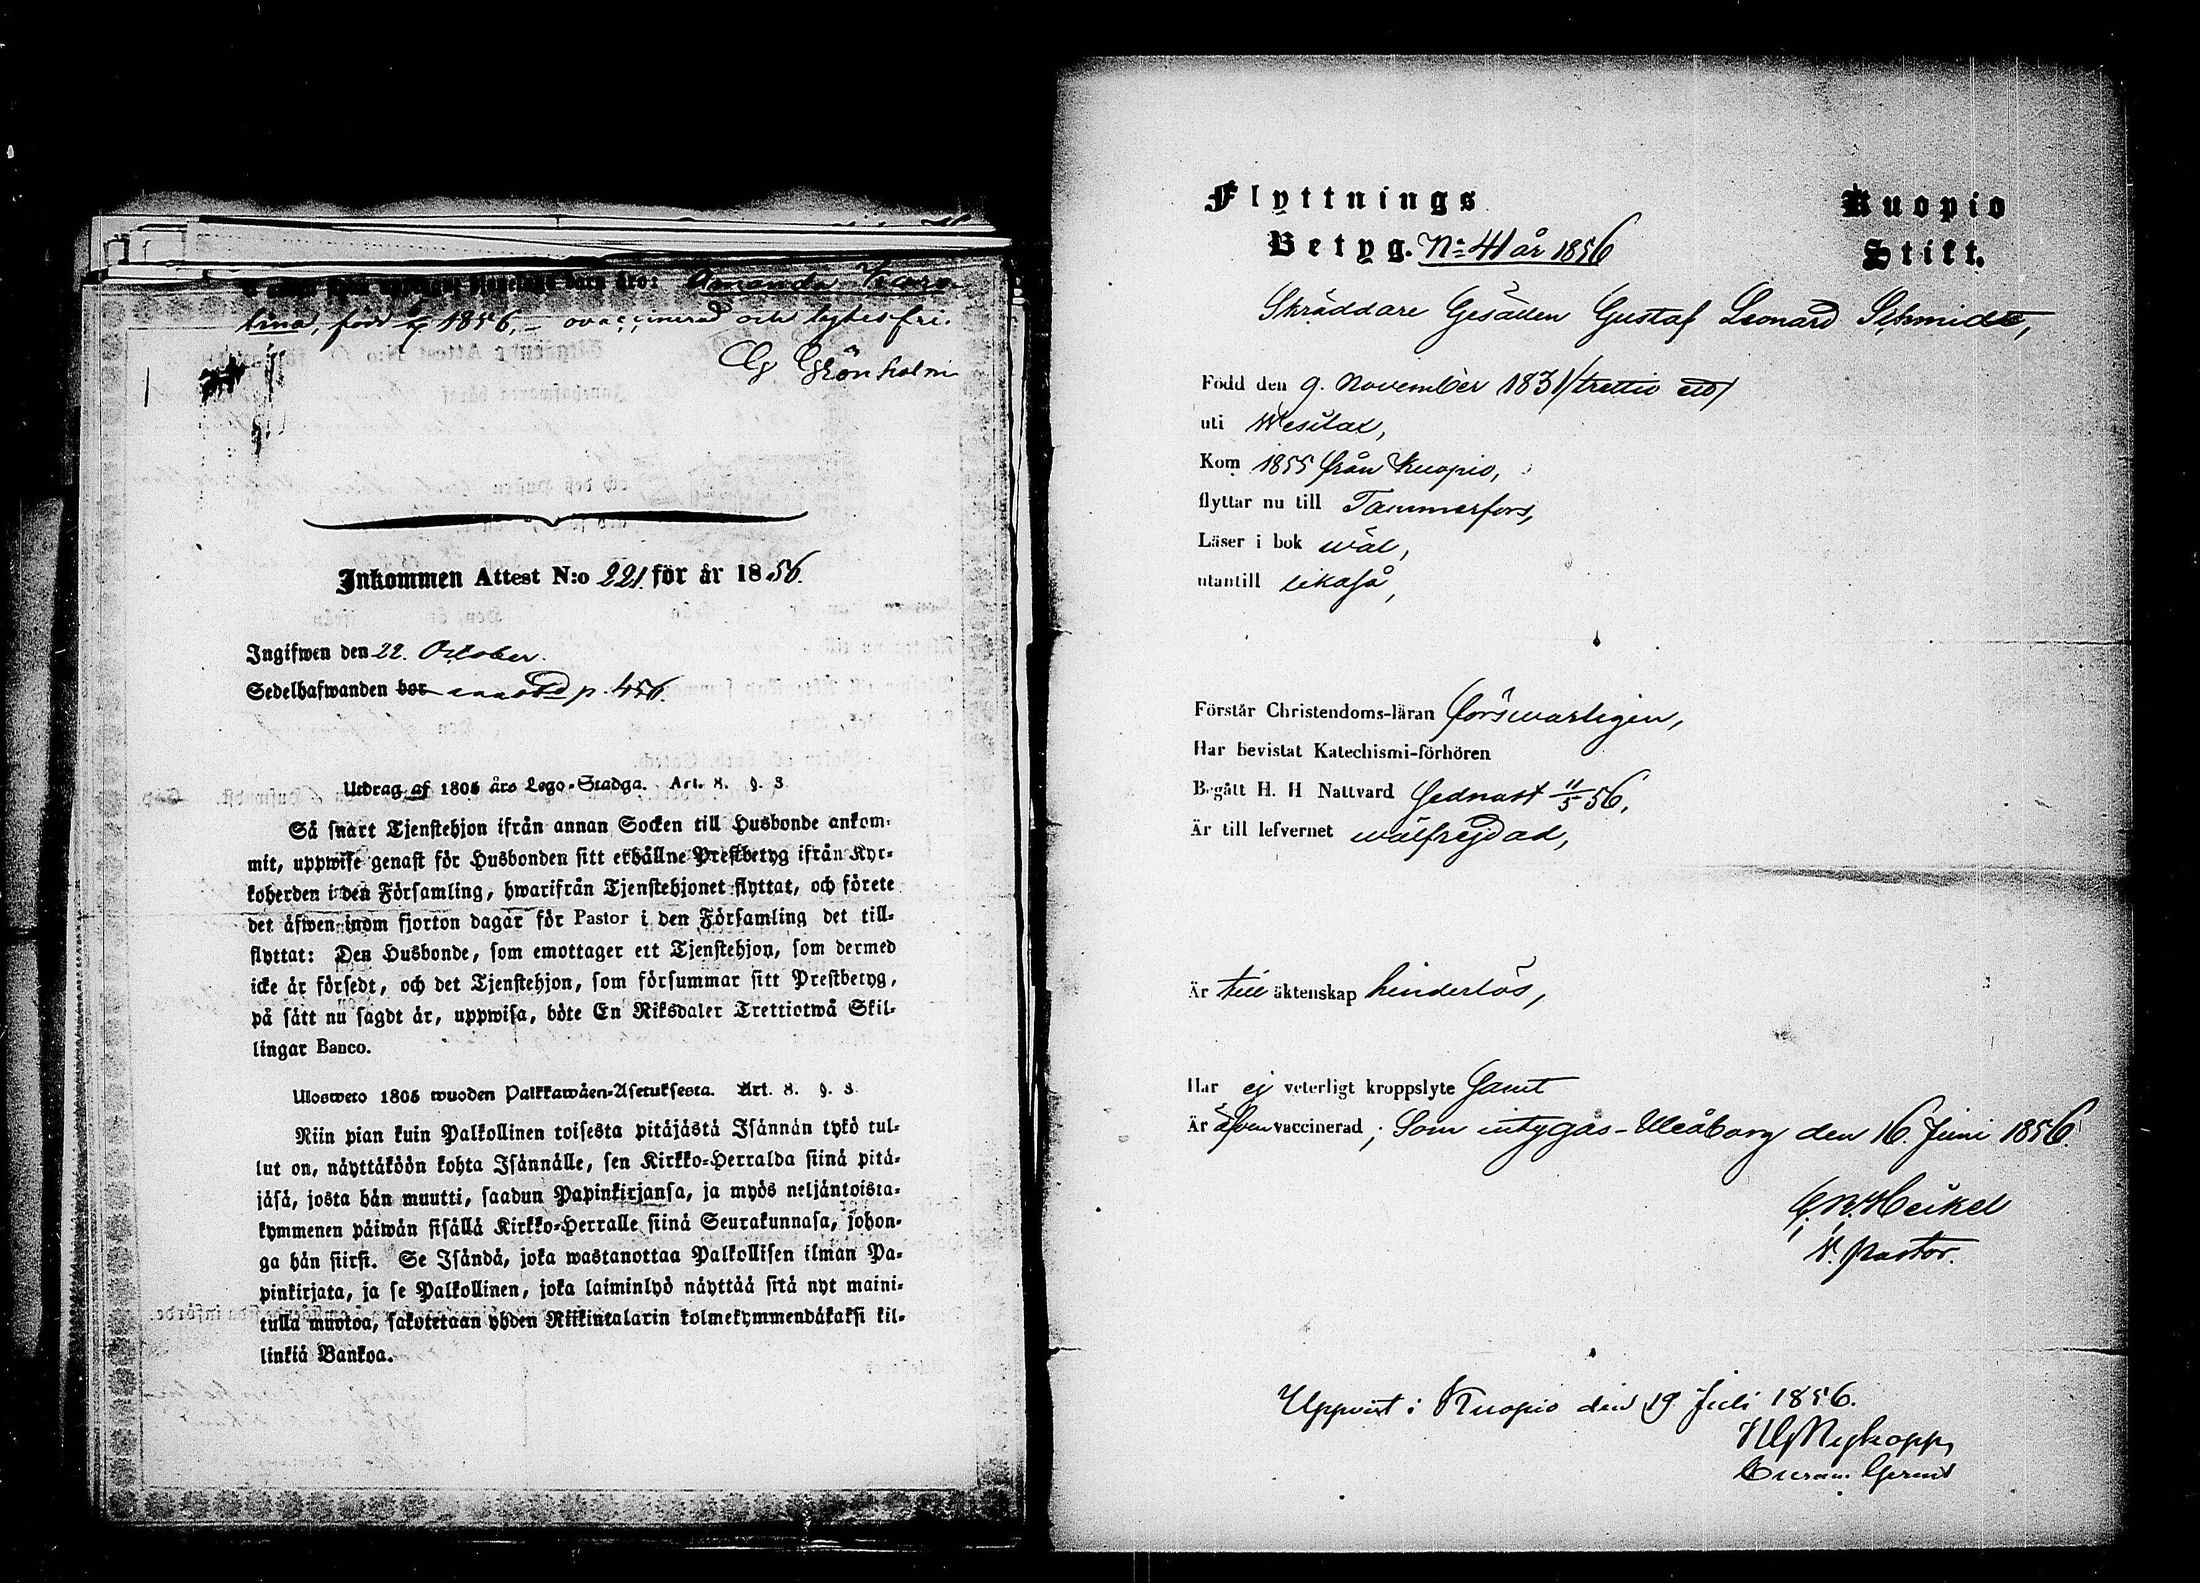 barn äro: Amanda Caro-
lina, född 1856, – ovaccinerad och lytesfri.
Cg Grönholm
Inkommen Attest N:o 221. för år 1856.
Ingifwen den 22. October.
Sedelhafwanden bor p. 456.
Utdrag af 1805 års Lego-Stadga. Art. 8. §. 3
Så snart Tjenstehjon ifrån annan Socken till Husbonde ankom-
mit, uppwise genast för Husbonden sitt erhållne Prestbetyg ifrån Kyr-
koherden i den Församling, hwarifrån Tjenstehjonet flyttat, och förete
det äfwen inom fjorton dagar för Pastor i den Församling det till-
flyttat: Den Husbonde, som emottager ett Tjenstehjon, som dermed
icke är försedt, och det Tjenstehjon, som försummar sitt Prestbetyg,
på sätt nu sagdt är, uppwisa, böte En Riksdaler Trettiotwå Skil-
lingar Banco.
Ulosweto 1805 wuoden Palkkawäen-Asetuksesta. Art. 8. §. 3
Niin pian kuin Palkollinen toisesta pitäjästä Isännän tykö tul-
lut on, näyttäköön kohta Isännälle, sen Kirkko-Herralda siinä pitä-
jäsä, josta hän muutti, saadun Papinkirjansa, ja myös neljäntoista-
kymmenen päiwän sisällä Kirkko-Herralle siinä Seurakunnasa, johon-
ga hän siirsi. Se Isändä, joka wastanottaa Palkollisen ilman Pa-
pinkirjata, ja se Palkollinen, joka laiminlyö näyttää sitä nyt maini-
tulla muotoa, sakotetaan yhden Riikintalarin kolmekymmendäkaksi kil-
linkiä Bankoa.
Flyttnings
Betyg. No 41 år 1856
Kuopio
Stift.
Skräddare Gesällen Gustaf Leonard Schmidt,
Född den 9. November 1831/trettio ett/
uti Wesilax,
Kom 1855 från Kuopio,
flyttar nu till Tammerfors,
Läser i bok wäl,
utantill likaså,
Förstår Christendoms-läran försvarligen,
Har bevistat Katechismi-förhören
Begått H. H Nattvard sednast 11/5 56,
Är till lefvernet wälfrejdad,
Är till äktenskap hinderlös,
Har ej veterligt kroppslyte samt
Är äfven vaccinerad; Som intygas – Uleåborg den 16. Juni 1856.
C. N. Heikel
V. Pastor.
Uppvist i Kuopio den 19 Juli 1856.
HG Nykopp,